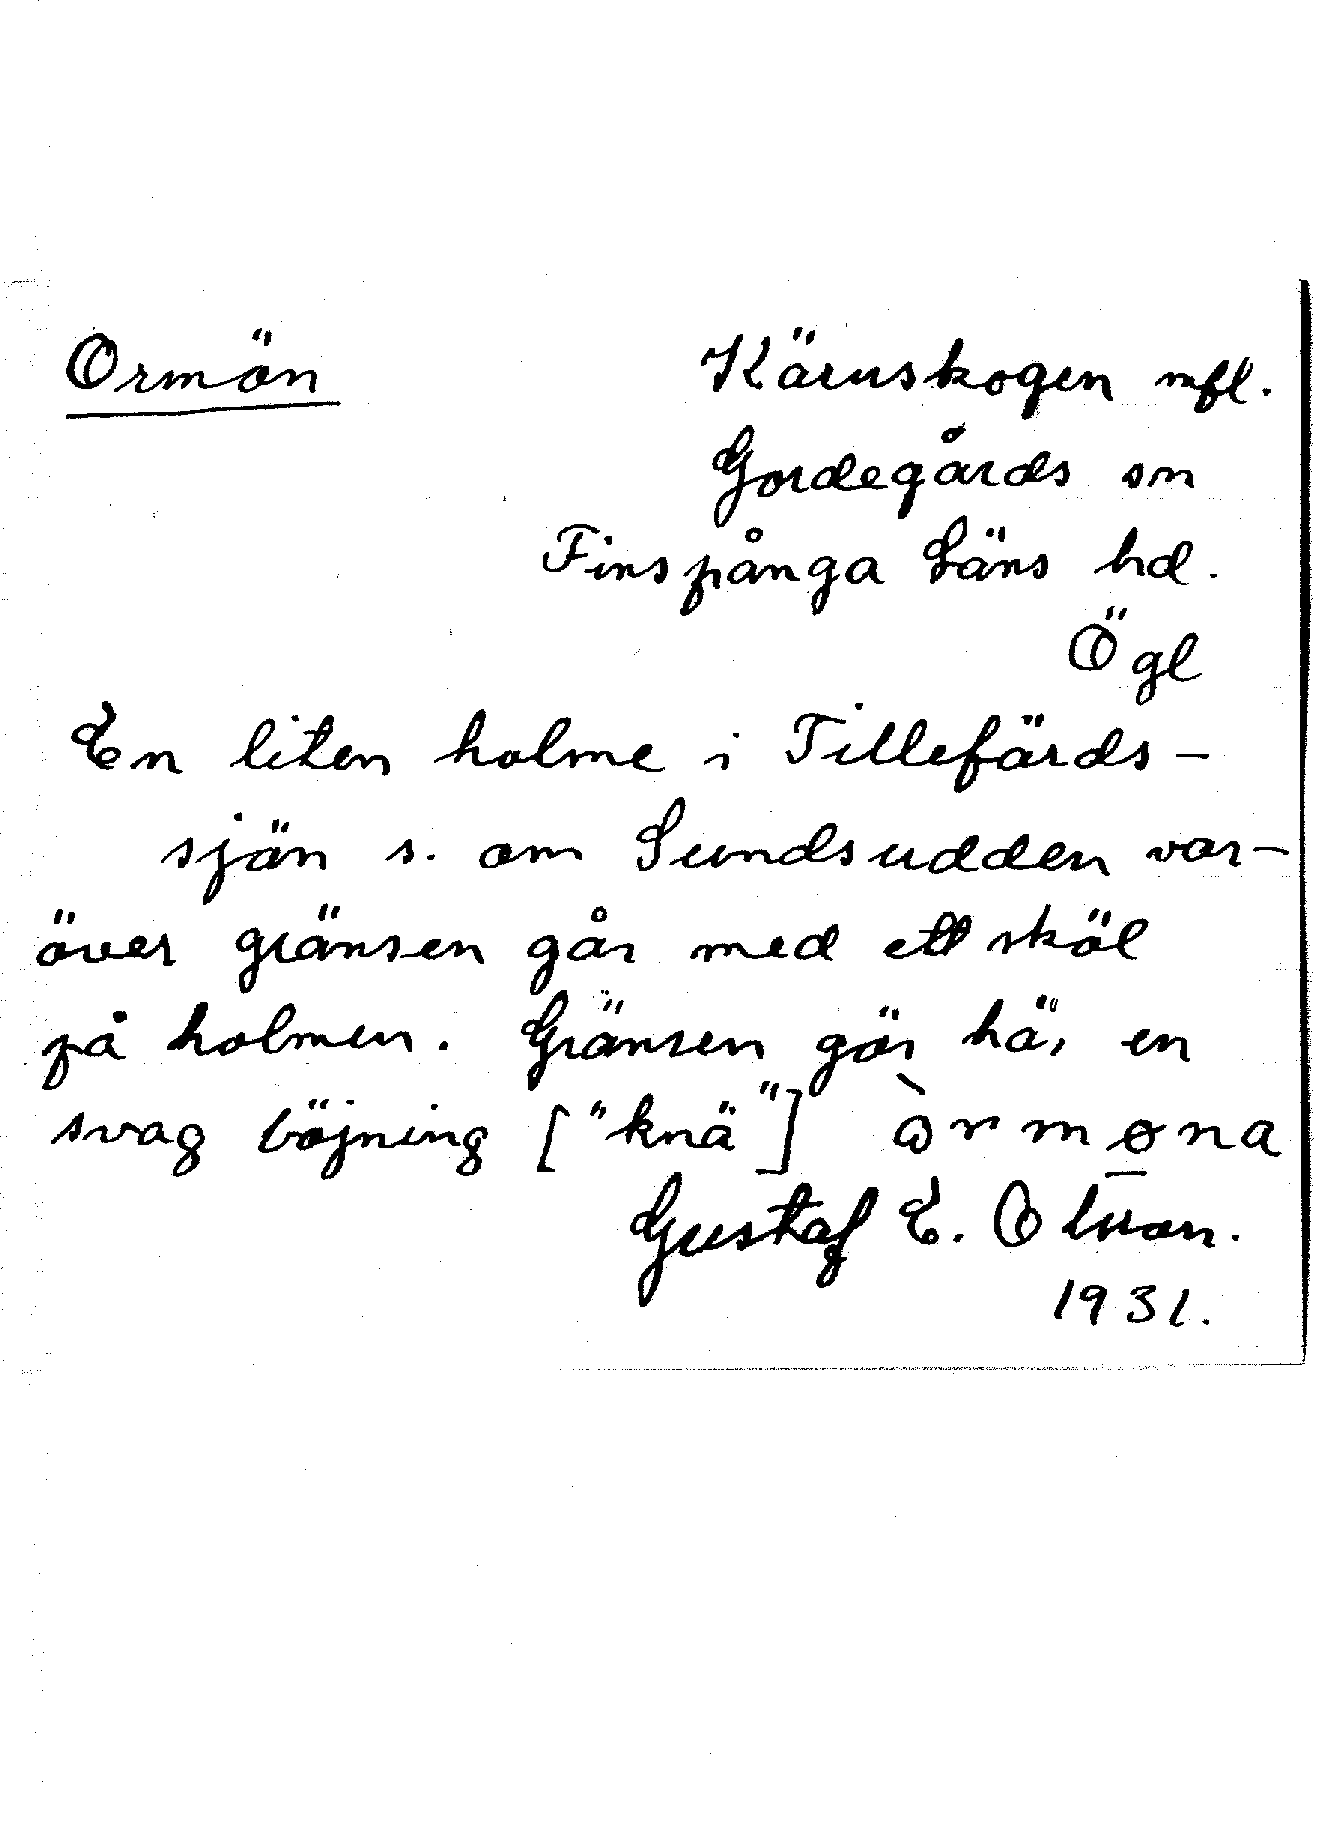 Ormön
Käruskogen mfl.
Gordegårds sn
Finspånga Läns hd.
Ögl
En liten holme i Tillefärds-
sjön s. om Sundsudden var-
över gränsen går med ett sköl
på holmen. Gränsen gör här en
svag böjning ["knä"] òrmøna
Gustaf E. Olsson.
1931.